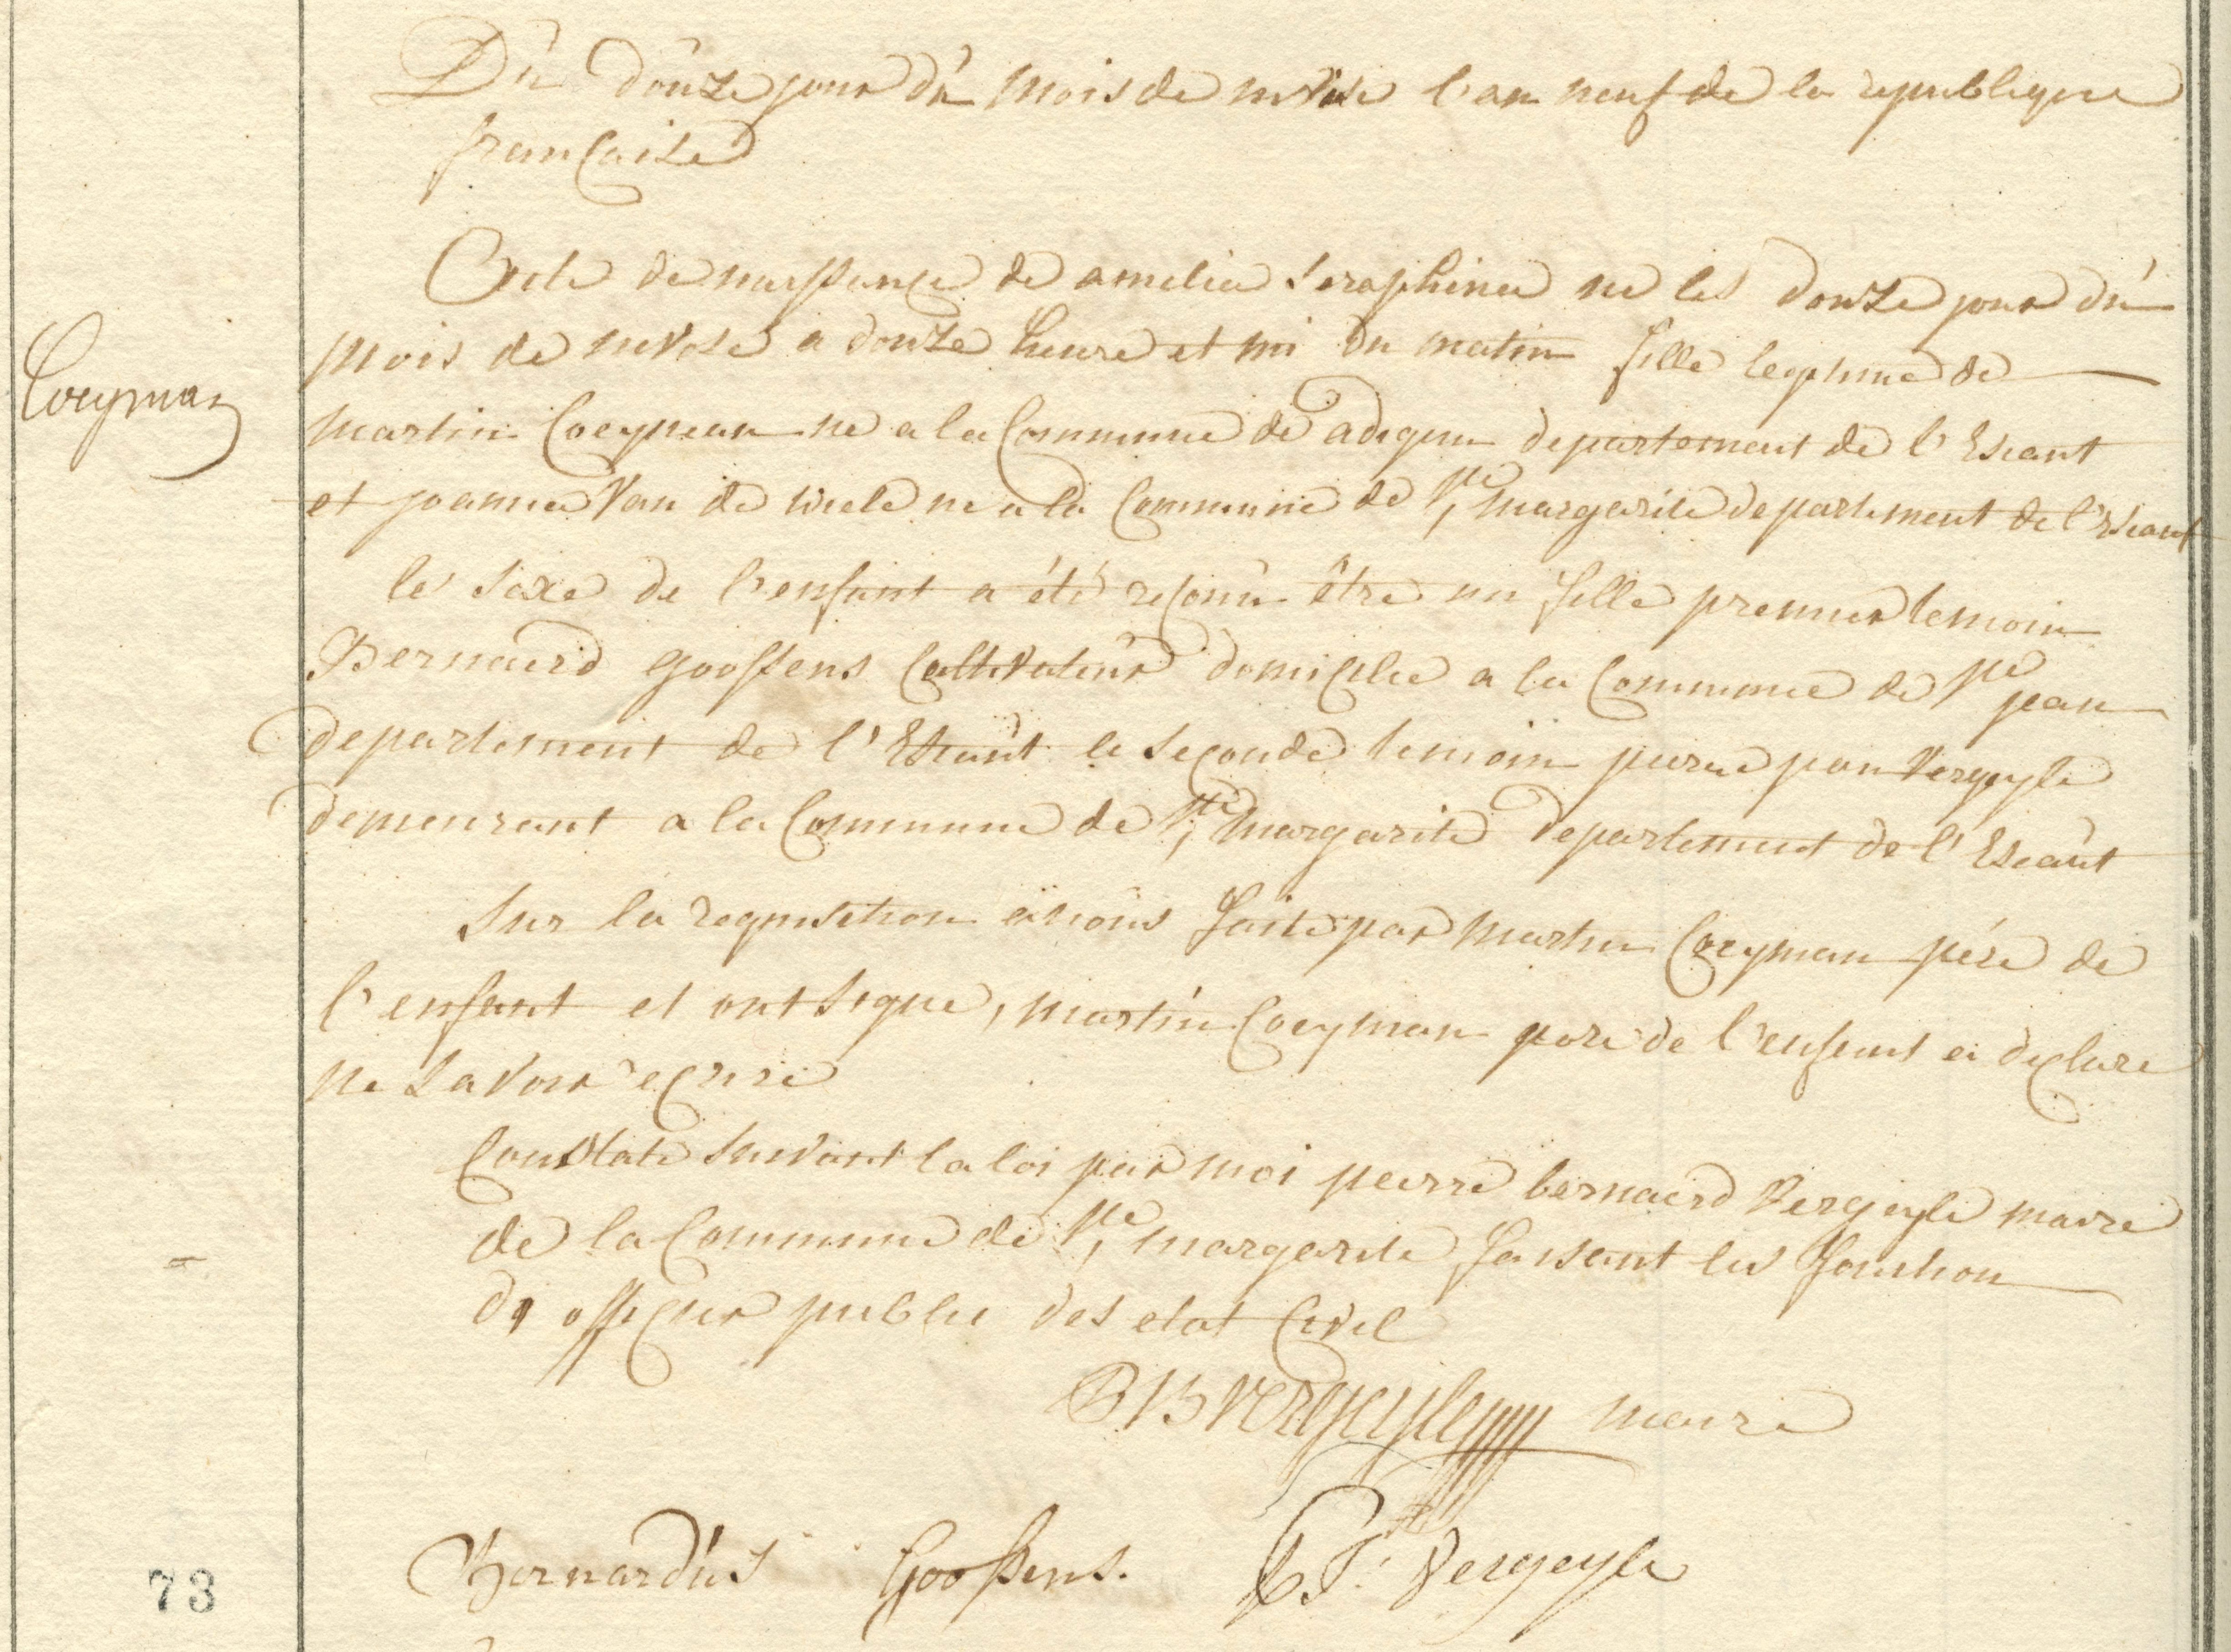 Du douze jour du mois de nivose l'an neuf de la republique
française
Acte de naissance de amelia seraphina ne les douze jour du
Coeyman
mois de nivose a douze heure et mi du matin fille legitime de
martin Coeyman ne a la Commune de adegem departement de l'Escaut
et joanna Van de wiele ne a la Commune de Ste margarite departement de l'Escaut
le sexe de l'enfant a été reconu être un fille premier temoin
Bernaerd goossens Cultivateur domicilie a la Commune de St jean
departement de l'Escaut le seconde temoin pierre jean Vergeyle
demeurant a la Commune de Ste margarite departement de l'Escaut
sur la requisition a nous faite par martin Coeyman pére de
l'enfant et ont signe, martin Coeyman pere de l'enfant a declare
ne savoir ecrire
Constate suivant la loi par moi pierre bernaerd Vergeyle maire
de la Commune de Ste margarite faisant les fonction
de officier public des etat Civil
P B Vergeyle maire
Bernardus Goossens. P J. Vergeyle
73